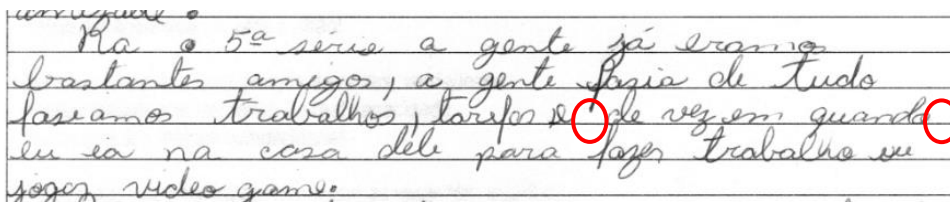 amizade.
Na o 5ª série a gente já eramos
bastantes amigos, a gente fazia de tudo
faseamos trabalhos, tarefas e de vez em quando
eu ia na casa dele para fazer trabalho ou
jogez video game.